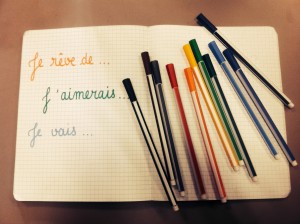 Je rêve de ...
J'aimerais...
Je vais ...